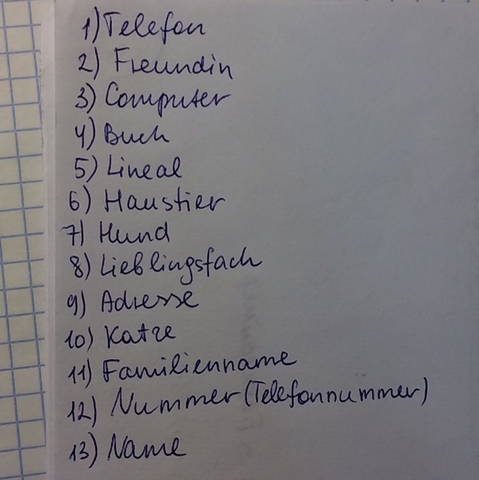 1) Telefon
2) Freundin
3) Computer
4) Buch
5) Lineal
6) Haustier
7) Hund
8) Lieblingsfach
9) Adresse
10) Katze
11) Familienname
12) Nummer (Telefonnummer)
13) Name